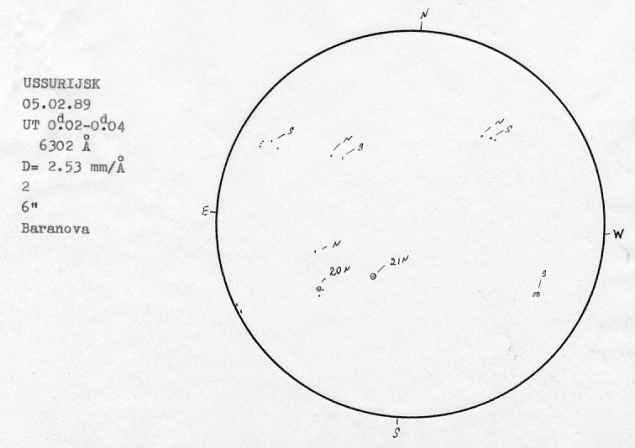 N
USSURIJSK
05.02.89
UT 0ᵈ.02-0ᵈ.04
6302 Å
D= 2.53 mm/Å
2
6"
Baranova
N
S
S
N
S
E
W
N
20N
21N
S
S